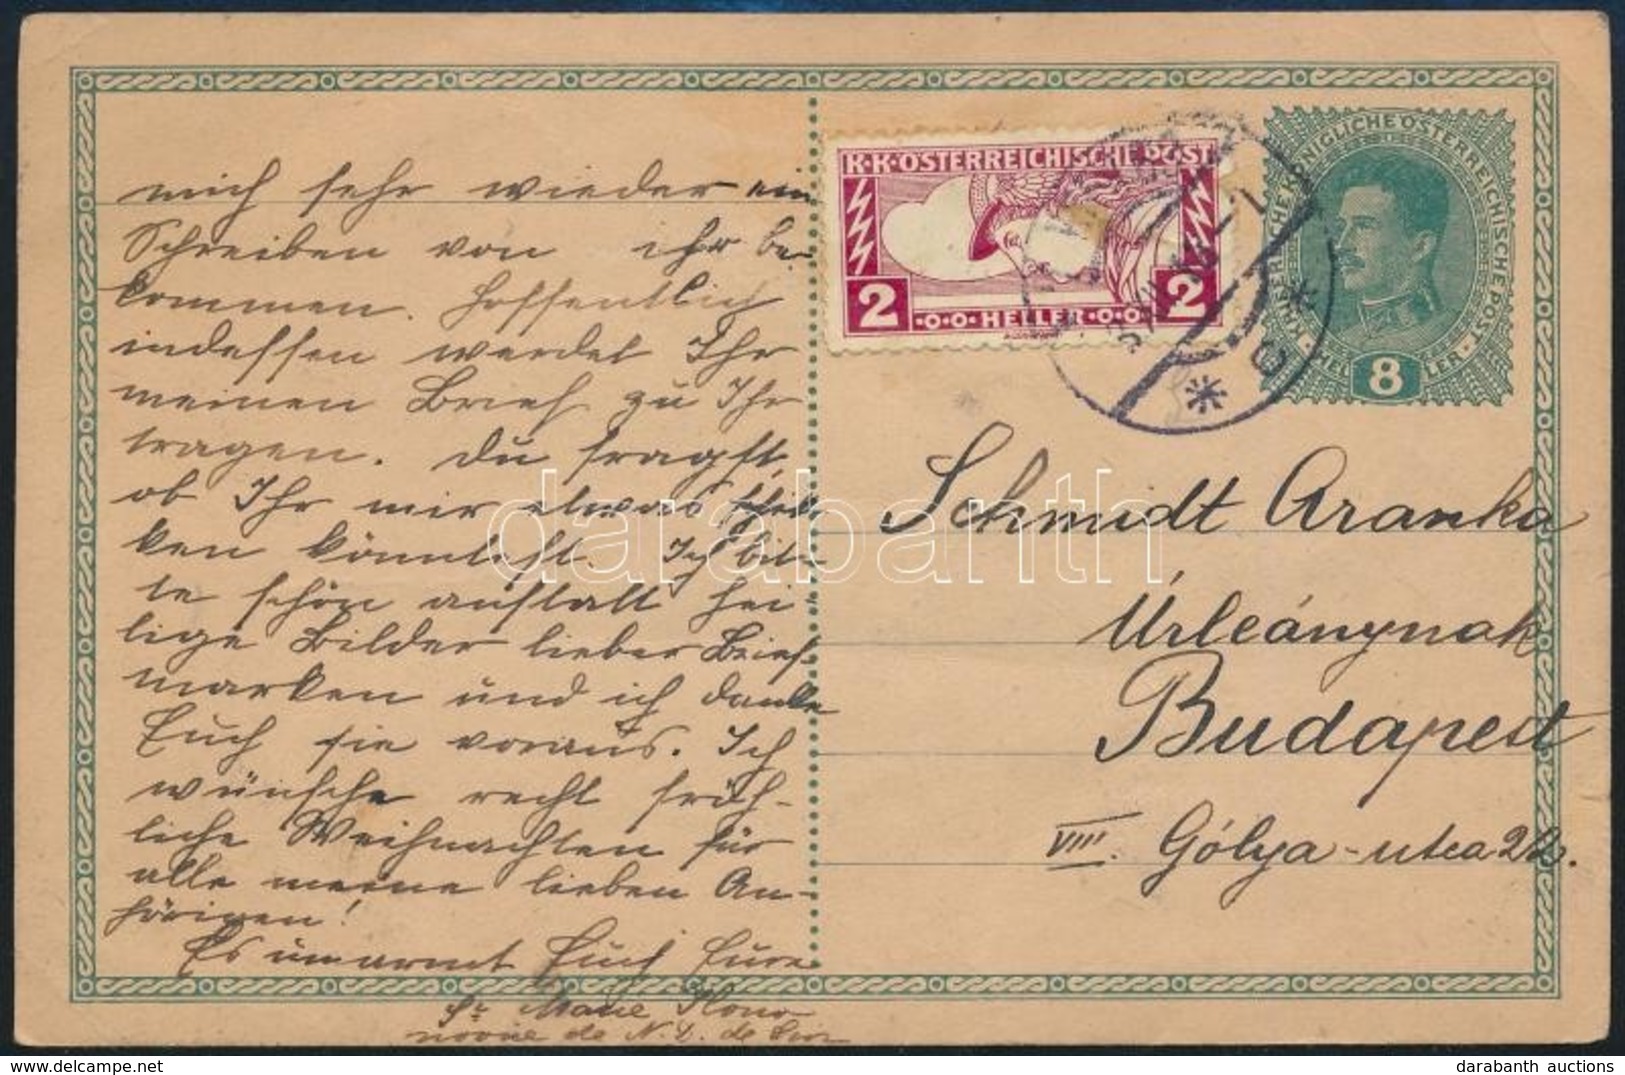 mich sehr wieder ein
Schreiben von ihr be-
kommen. Hoffentlich
indessen werdet Ihr
meinen Brief zu Ihr
tragen. Du fragst,
ob Ihr mir etwas schik
ken könntest. Ich bit-
te schön anstatt hei-
lige Bilder lieber Brief-
marken und ich danke
Euch sie voraus. Ich
wünsche recht fröh-
liche Weihnachten für
alle meine lieben An-
hörigen!
Es umarmt Euch Eure
Sr. Marie
novice de N. D. de Sion
K·K·ÖSTERREICHISCHE POST
2 HELLER 2
KAISERLICHE KÖNIGLICHE ÖSTERREICHISCHE POST
8
Schmidt Aranka
Úrleánynak
Budapest
VIII. Gólya-utca 22.
darabanth
darabanth auctions